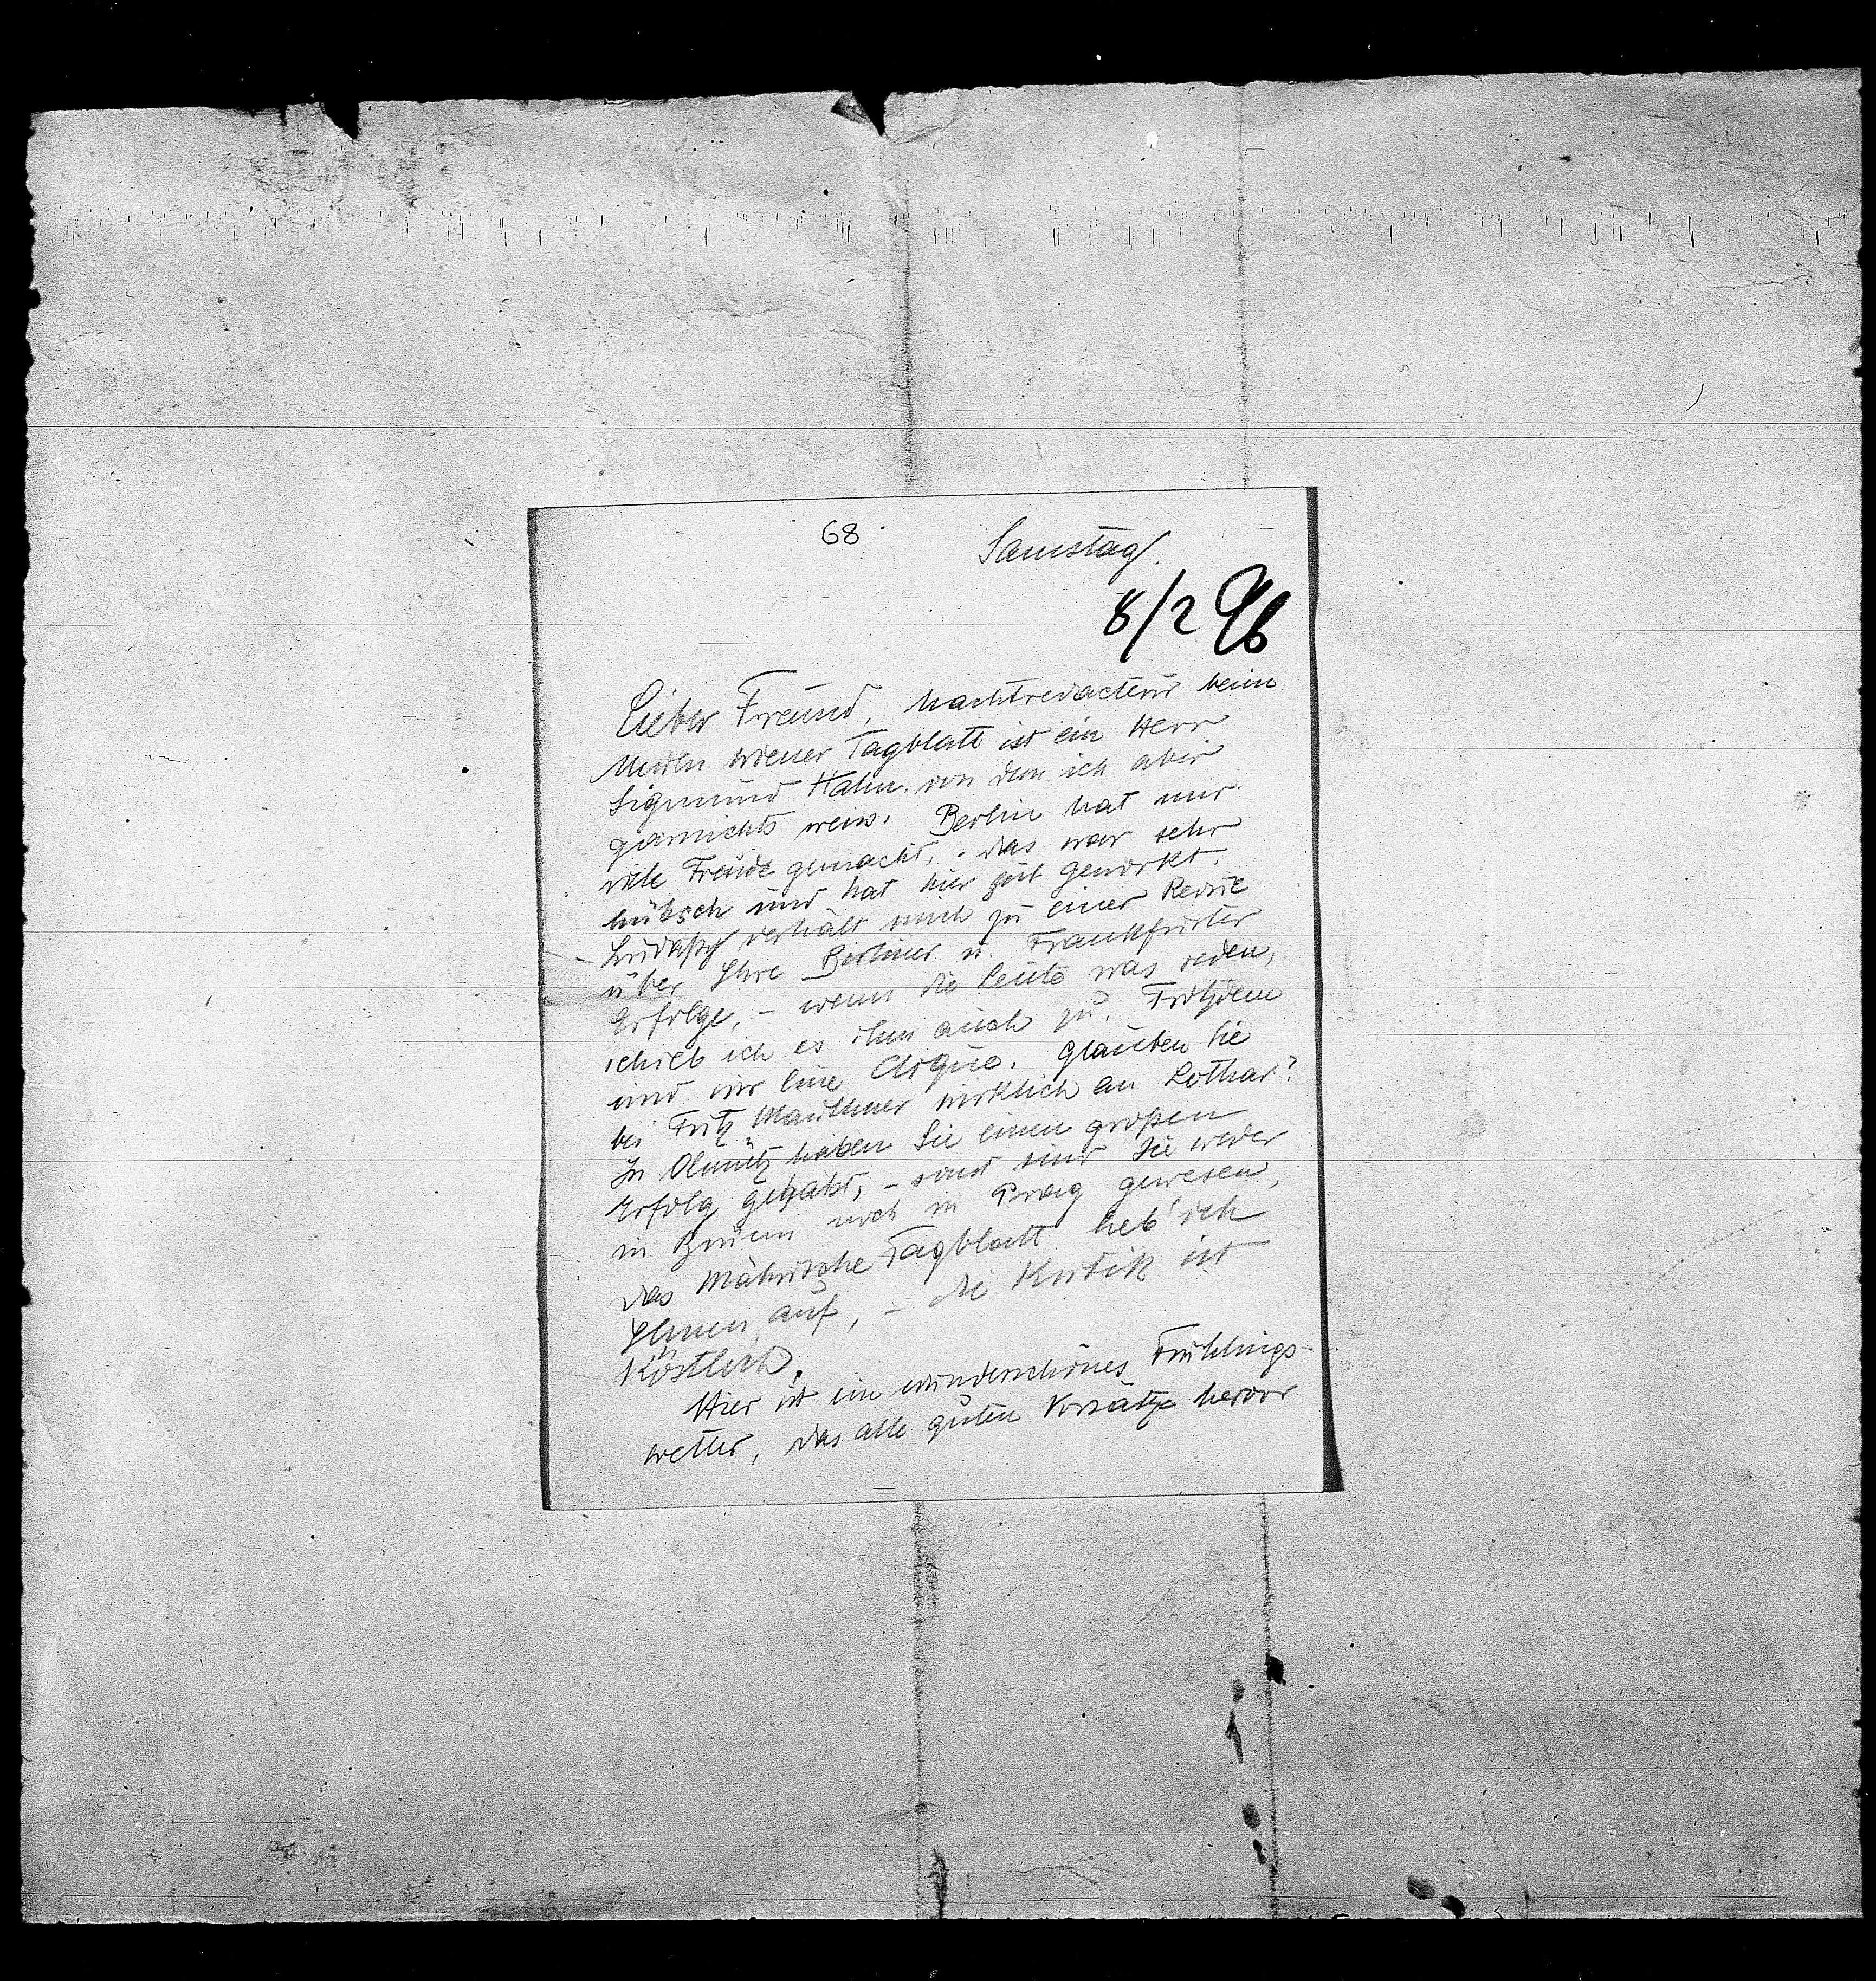 68
Samstag.
8/2 96
Lieber Freund, Nachtredacteur beim
Neuen Wiener Tagblatt ist ein Herr
Sigmund Hahn, von dem ich aber
garnichts weiss. Berlin hat mir
viele Freude gemacht, – das war sehr
hübsch und hat hier gut gewirkt.
Ludaßy verhält mich zu einer Revue
über Ihre Berliner u. Frankfurter
Erfolge, – wenn die Leute was reden,
schieb ich es ihm auch zu. Trotzdem
sind wir eine Clique. Glauben Sie
bei Fritz Mauthner wirklich an Lothar?
In Olmütz haben Sie einen großen
Erfolg gehabt, – sonst sind Sie weder
in Brünn noch in Prag gewesen,
das Mährische Tagblatt heb' ich
Ihnen auf, – die Kritik ist
köstlich.
Hier ist ein wunderschönes Frühlings-
wetter, das alle guten Vorsätze hervor